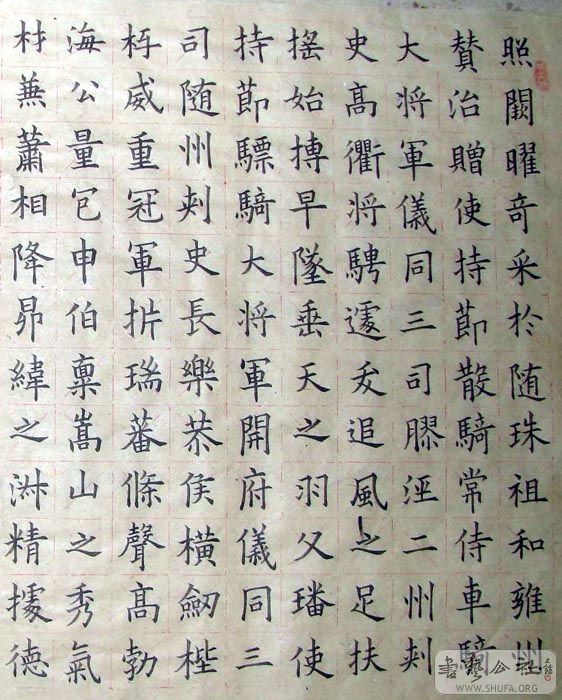 照闕曜奇采於随珠祖和雍州
賛治贈使持節散騎常侍車騎
大將軍儀同三司膠涇二州刺
史高衢將騁遽夭追風之足扶
搖始摶早墜垂天之羽父璠使
持節驃騎大將軍開府儀同三
司随州刺史長樂恭侯橫劒梐
枑威重冠軍析瑞蕃條聲高勃
海公量包申伯稟嵩山之秀氣
材兼蕭相降昴緯之淑精據德
書藝公社
WWW.SHUFA.ORG